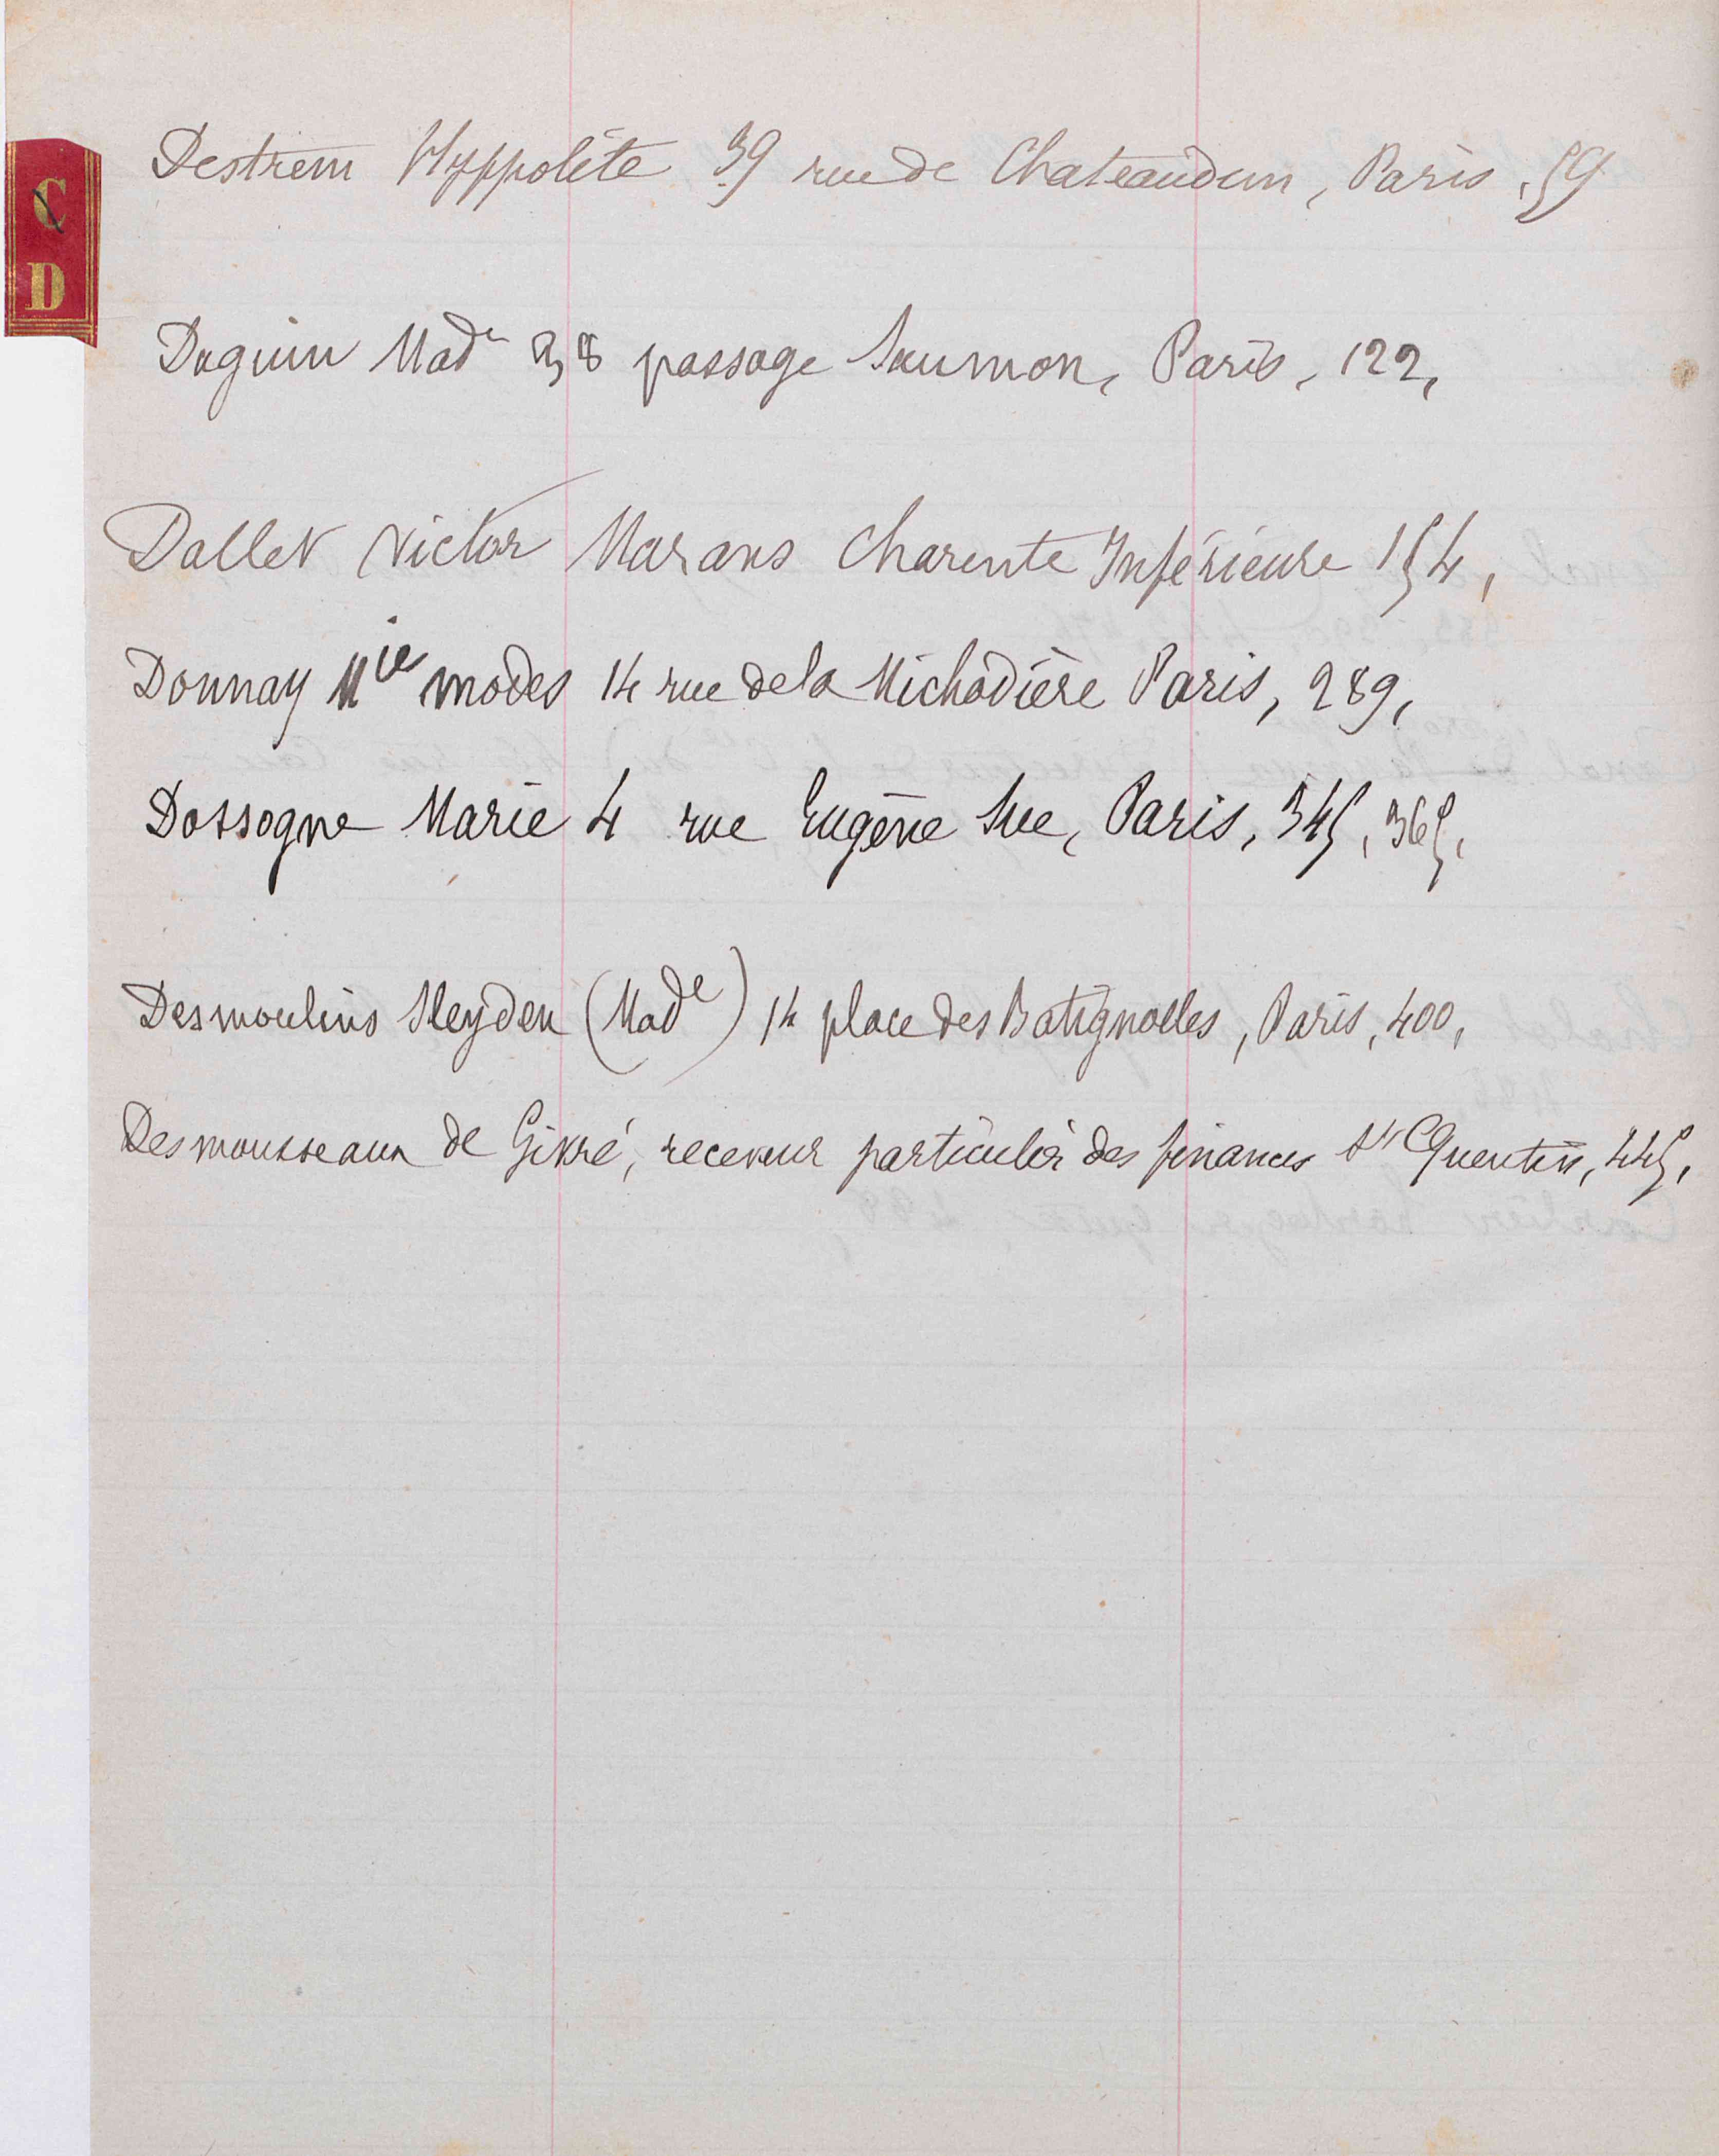 C
D
Destrem Hyppolite 39 rue de Chateaudun, Paris, 59
Daguin Made 38 passage Saumon, Paris, 122,
Dallet Victor Marans Charente Inférieure 154,
Donnay Mie modes 14 rue de la Michodière Paris, 289,
Dossogne Marie 4 rue Eugène Sue, Paris, 345, 365,
Desmoulins Sleyden (Made) 14 place des Batignolles, Paris, 400,
Desmousseaux de Givré, receveur particulier des finances St Quentin, 445,